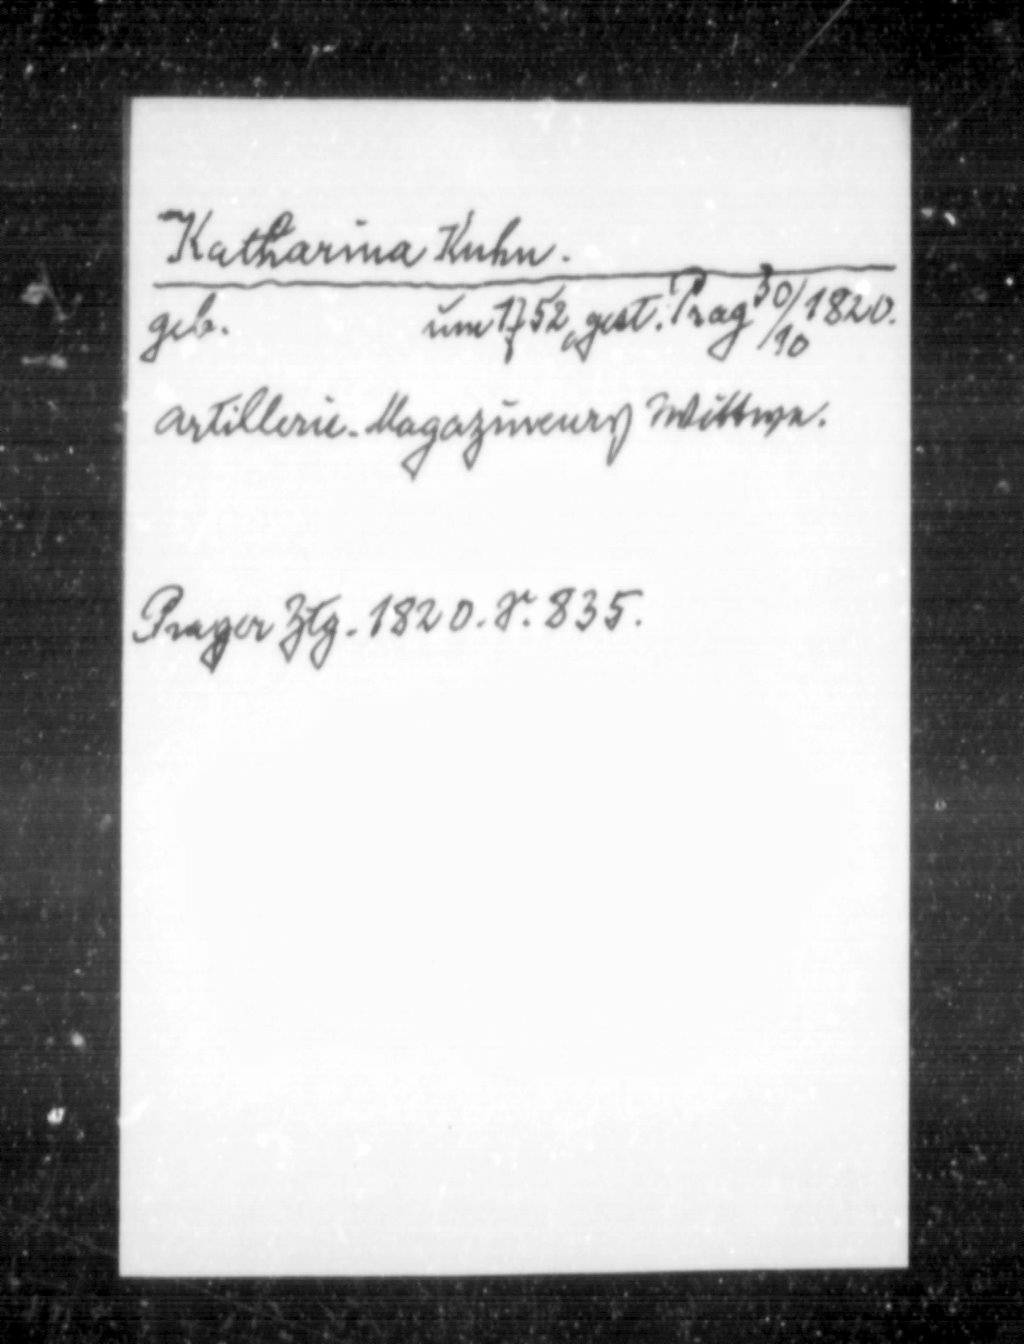 Katharina Kuhn.
geb. um 1752, gest. Prag 30/10 1820.
Artillerie-Magazineurs Wittwe.
Prager Ztg. 1820. S. 835.